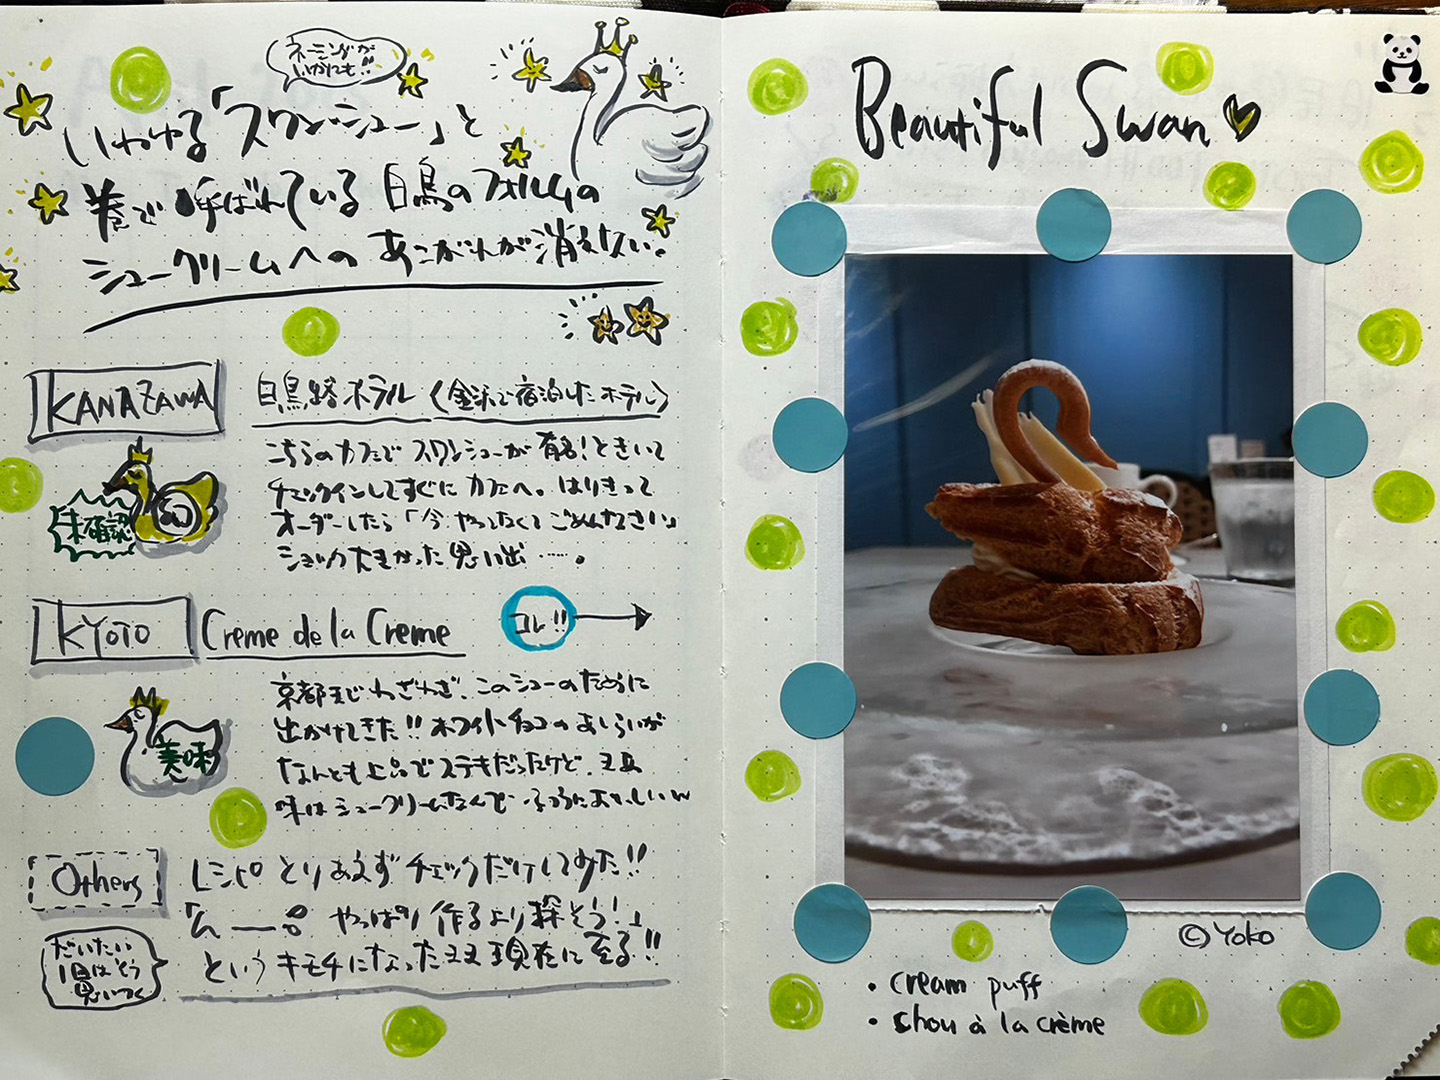 ネーミングが
いかにも!!
いわゆる「スワンシュー」と
巷で呼ばれている白鳥のフォルムの
シュークリームへのあこがれが消えない。
KANAZAWA
白鳥路ホテル(金沢で宿泊したホテル)
こちらのカフェでスワンシューが有名!ときいて
チェックインしてすぐにカフェへ。はりきって
オーダーしたら「今やってなくてごめんなさい」
ショック大きかった思い出……。
未確認
KYOTO
Creme de la Creme
コレ!!
京都までわざわざ、このシューのために
出かけてきた!!ホワイトチョコのあしらいが
なんとも上品でステキだったけど、
味はシュークリームなんで ふつうにおいしいw
美味
Others
レシピとりあえずチェックだけしてみた!!
「ん――。やっぱり作るより探そう!」
というキモチになったまま現在に至る!!
だいたい
1回はそう
思いつく
Beautiful Swan
©Yoko
• cream puff
• chou à la crème